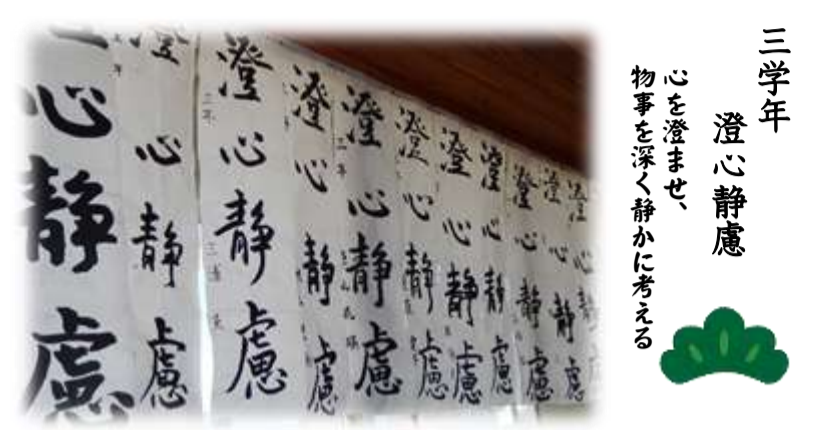 三学年
澄心静慮
心を澄ませ、
物事を深く静かに考える
澄心静
澄心静慮
澄心静慮
澄心静慮
澄心静慮
澄心静慮
澄心静慮
澄心静慮
澄心静慮
三年
澄心静慮
心静慮